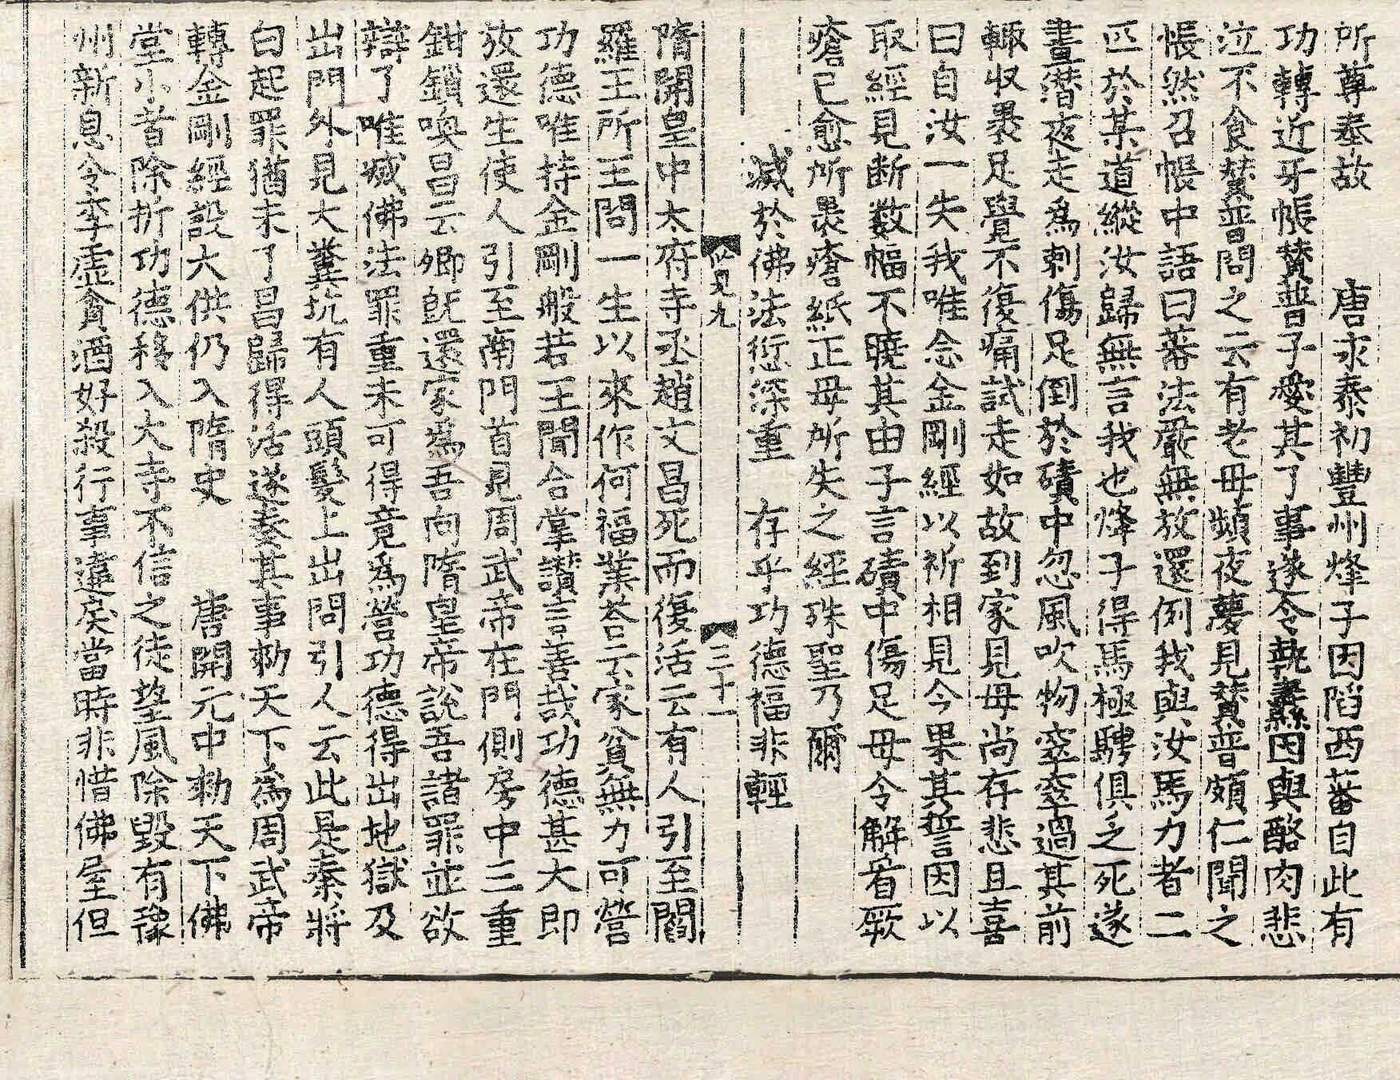 所尊奉故　　唐永泰初豐州烽子因陷西蕃自此有
功轉近牙帳贊普子愛其了事遂令執纛因與酪肉悲
泣不食贊普問之云有老母頻夜夢見贊普頗仁聞之
悵然召帳中語曰蕃法嚴無放還例我與汝馬力者二
匹於某道縱汝歸無言我也烽子得馬極騁俱乏死遂
晝潛夜走爲刺傷足倒於磧中忽風吹物窣窣過其前
輙収褁足覺不復痛試走如故到家見母尚存悲且喜
曰自汝一失我唯念金剛經以祈相見今果其誓因以
取經見断数幅不曉其由子言磧中傷足母令解看厥
瘡已愈所褁瘡紙正母所失之經殊聖乃爾
滅於佛法愆深重　存乎功德福非輕
三十一
隋開皇中太府寺丞趙文昌死而復活云有人引至閻
羅王所王問一生以來作何福業荅云家貧無力可營
功德唯持金剛般若王聞合掌讃言善哉功德甚大即
放還生使人引至南門首見周武帝在門側房中三重
鉗鎖喚昌云卿旣還家爲吾向隋皇帝說吾諸罪並欲
辯了唯滅佛法罪重未可得竟爲營功德得出地獄及
出門外見大糞坑有人頭髮上出問引人云此是秦將
白起罪猶未了昌歸得活遂奏其事勑天下爲周武帝
轉金剛經設大供仍入隋史　　唐開元中勑天下佛
堂小者除折功德移入大寺不信之徒望風除毀有豫
州新息令李虛貪酒好殺行事違戾當時非惜佛屋但